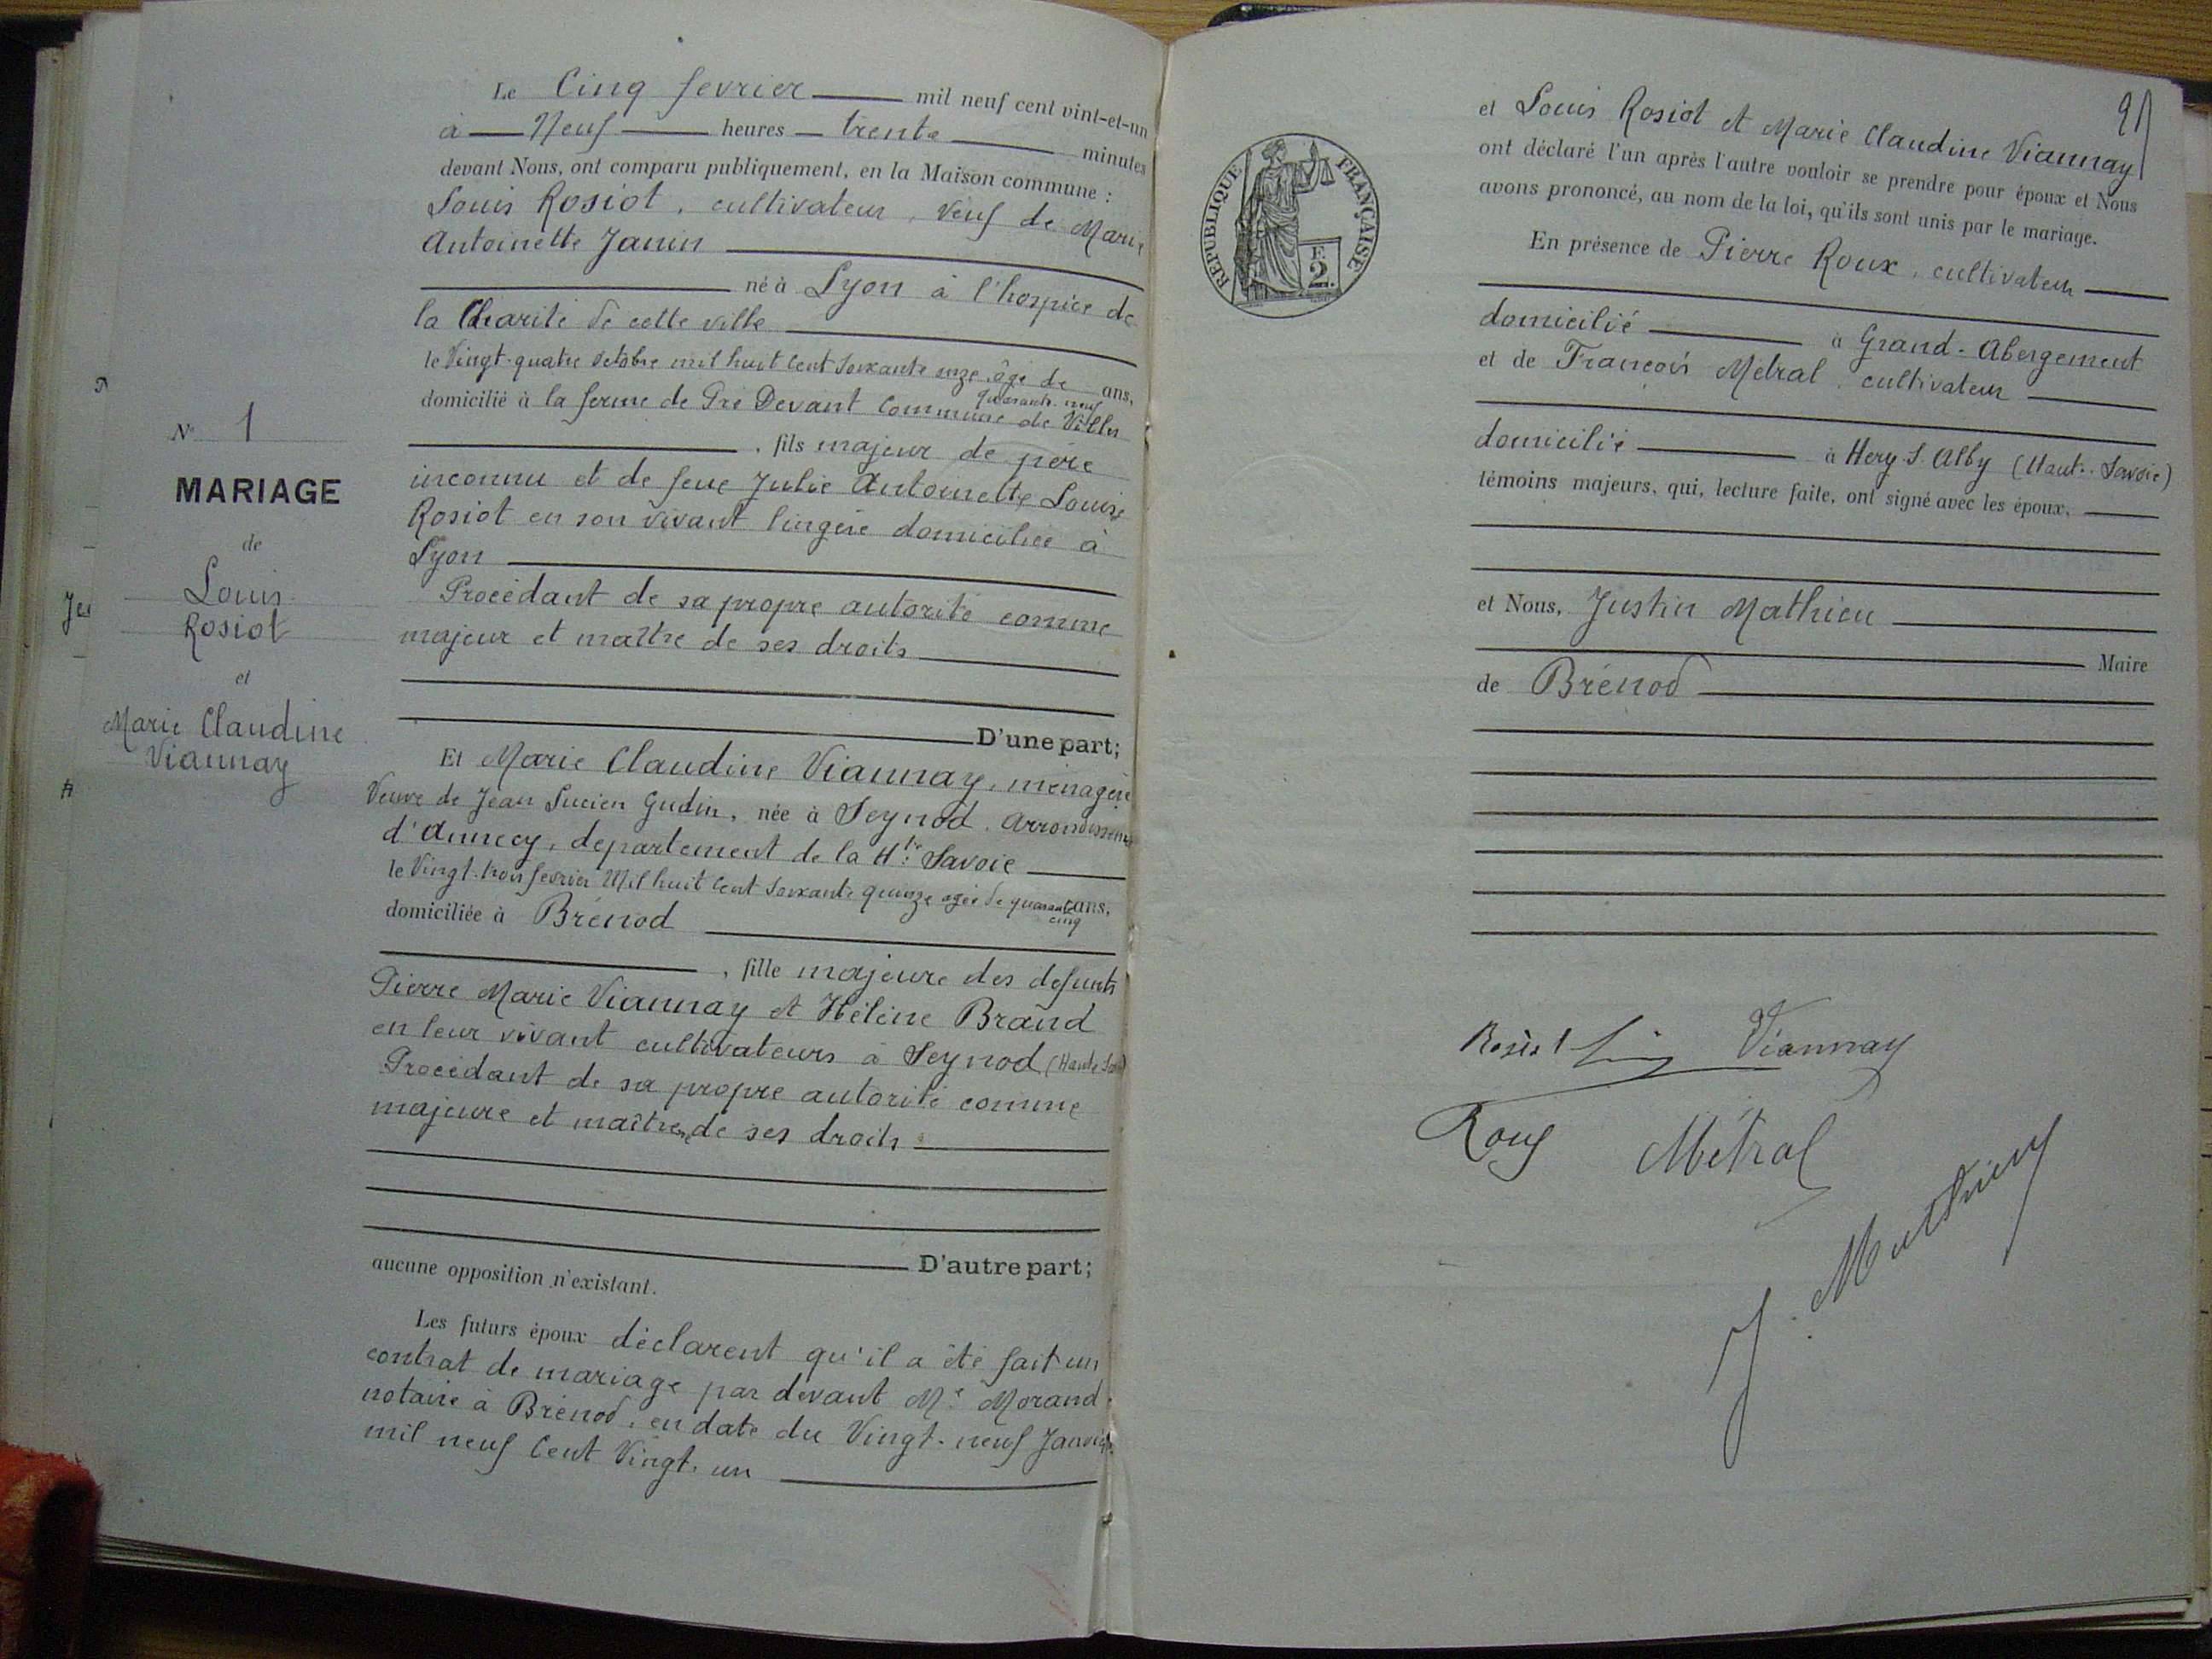 N° 1
MARIAGE
de
Louis
Rosiot
et
Marie Claudine
Viannay
Le Cinq fevrier mil neuf cent vint-et-un
à Neuf heures trente minutes
devant Nous, ont comparu publiquement, en la Maison commune :
Louis Rosiot, cultivateur, veuf de Marie
Antoinette Janin
né à Lyon à l'hospice de
la Charité de cette ville
le Vingt-quatre octobre mil huit cent soixante onze âgé de quarante-neuf ans,
domicilié à la ferme de Pré Devant Commune de Villes
, fils majeur de père
inconnu et de feue Julie Antoinette Louise
Rosiot en son vivant lingère domiciliée à
Lyon
Procédant de sa propre autorité comme
majeur et maître de ses droits
D'une part;
Et Marie Claudine Viannay, ménagère
Veuve de Jean Lucien Gudin, née à Seynod, Arrondissement
d'Annecy, departement de la Hte Savoie
le Vingt-trois fevrier Mil huit cent soixante quinze agée de quarante cinq ans,
domiciliée à Brénod
, fille majeure des defunts
Pierre Marie Viannay et Hélène Brand
en leur vivant cultivateurs à Seynod (Haute Savoie)
Procédant de sa propre autorité comme
majeure et maîtresse de ses droits
D'autre part;
aucune opposition n'existant.
Les futurs époux déclarent qu'il a été fait un
contrat de mariage par devant Me Morand,
notaire à Brénod, en date du Vingt-neuf Janvier
mil neuf Cent Vingt-un
RÉPUBLIQUE FRANÇAISE
F.
2.
et Louis Rosiot et Marie Claudine Viannay
ont déclaré l'un après l'autre vouloir se prendre pour époux et Nous
avons prononcé, au nom de la loi, qu'ils sont unis par le mariage.
En présence de Pierre Roux, cultivateur
domicilié à Grand-Abergement
et de François Métral, cultivateur
domicilié à Hery-S-Alby (Haute-Savoie)
témoins majeurs, qui, lecture faite, ont signé avec les époux,
et Nous, Justin Mathieu
Maire
de Brénod
Viannay
Roux Métral
J. Mathieu